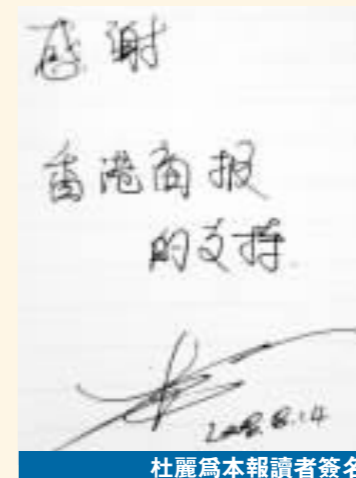 感谢
香港商报
的支持.
2008.8.14
杜麗爲本報讀者簽名